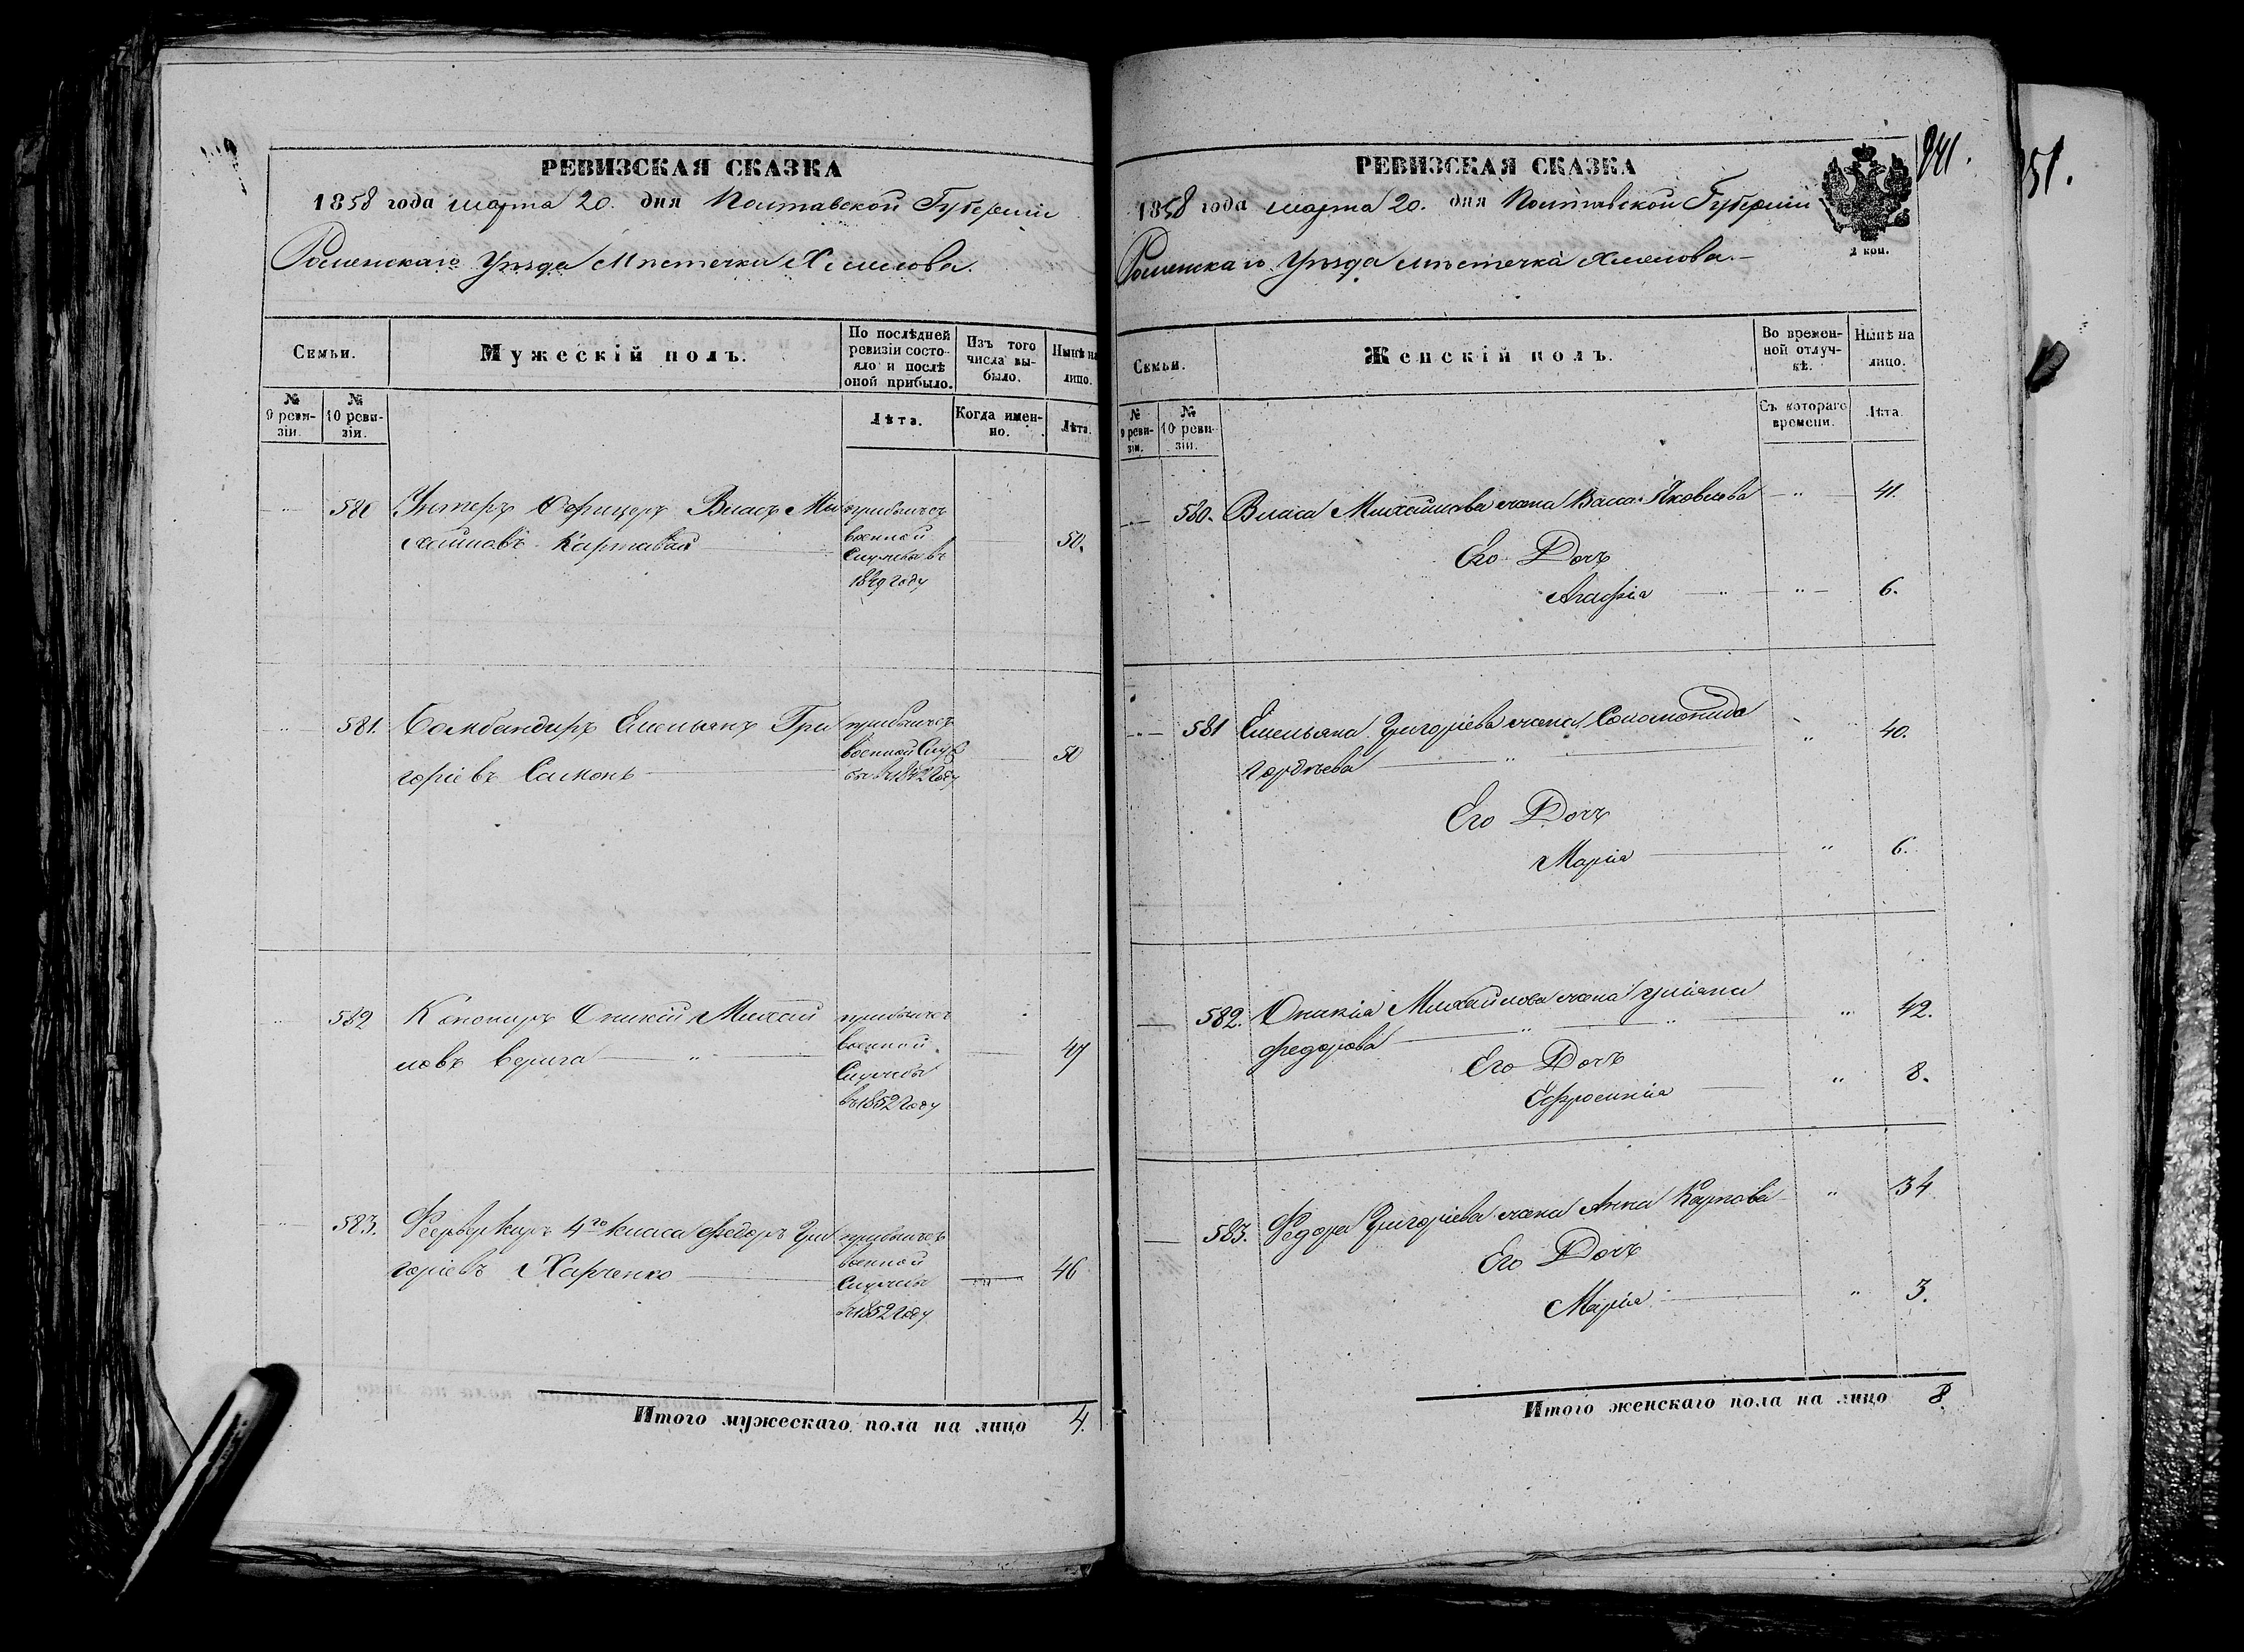 РЕВИЗСКАЯ СКАЗКА
1858 года марта 20. дня Полтавской Губерніи
Роменскаго Уѣзда Мѣстечка Хмелова.
Семьи.
Мужескій полъ.
По послѣдней ревизіи состояло и послѣ оной прибыло.
Изъ того числа выбыло.
Нынѣ на лицо.
№ 9 ревизіи.
№ 10 ревизіи.
Лѣта.
Когда именно.
Лѣта.
580 Унтеръ Офицеръ Власъ Ми
хайловъ Картавый
прибылъ съ
военной
Службы въ
1849 году
50.
581. Бомбандиръ Емельянъ Гри
горіевъ
прибылъ съ
военной Служ
бы въ 1842 году
50
582 Канониръ Оникій Михай
ловъ Верига
прибылъ съ
военной
Службы
въ 1852 году
47
583. Феерверкеръ 4го класа Федоръ Гри
горіевъ Харченко
прибылъ съ
военной
Службы
въ 1852 году
46
Итого мужескаго пола на лицо 4.
РЕВИЗСКАЯ СКАЗКА
1858 года марта 20. дня Полтавской Губерніи
Роменскаго Уѣзда мѣстечка Хмелова.
2 коп.
241.
51.
Семьи.
Женскій полъ.
Во временной отлучкѣ.
Нынѣ на лицо.
№ 9 ревизіи.
№ 10 ревизіи.
Съ котораго времени.
Лѣта.
580. Власа Михайлова жена Васса Яковлева 41.
Его Дочь
Агафія 6.
581 Емельяна Григоріева жена Соломонида 40.
Гордѣева
Его Дочь
Марія 6.
582. Оникія Михайлова жена Уліяна 42.
Федорова
Его Дочь
Ефросинія 8.
583. Федора Григоріева жена Анна Карпова 34
Его Дочь
Марія 3.
Итого женскаго пола на лицо 8.